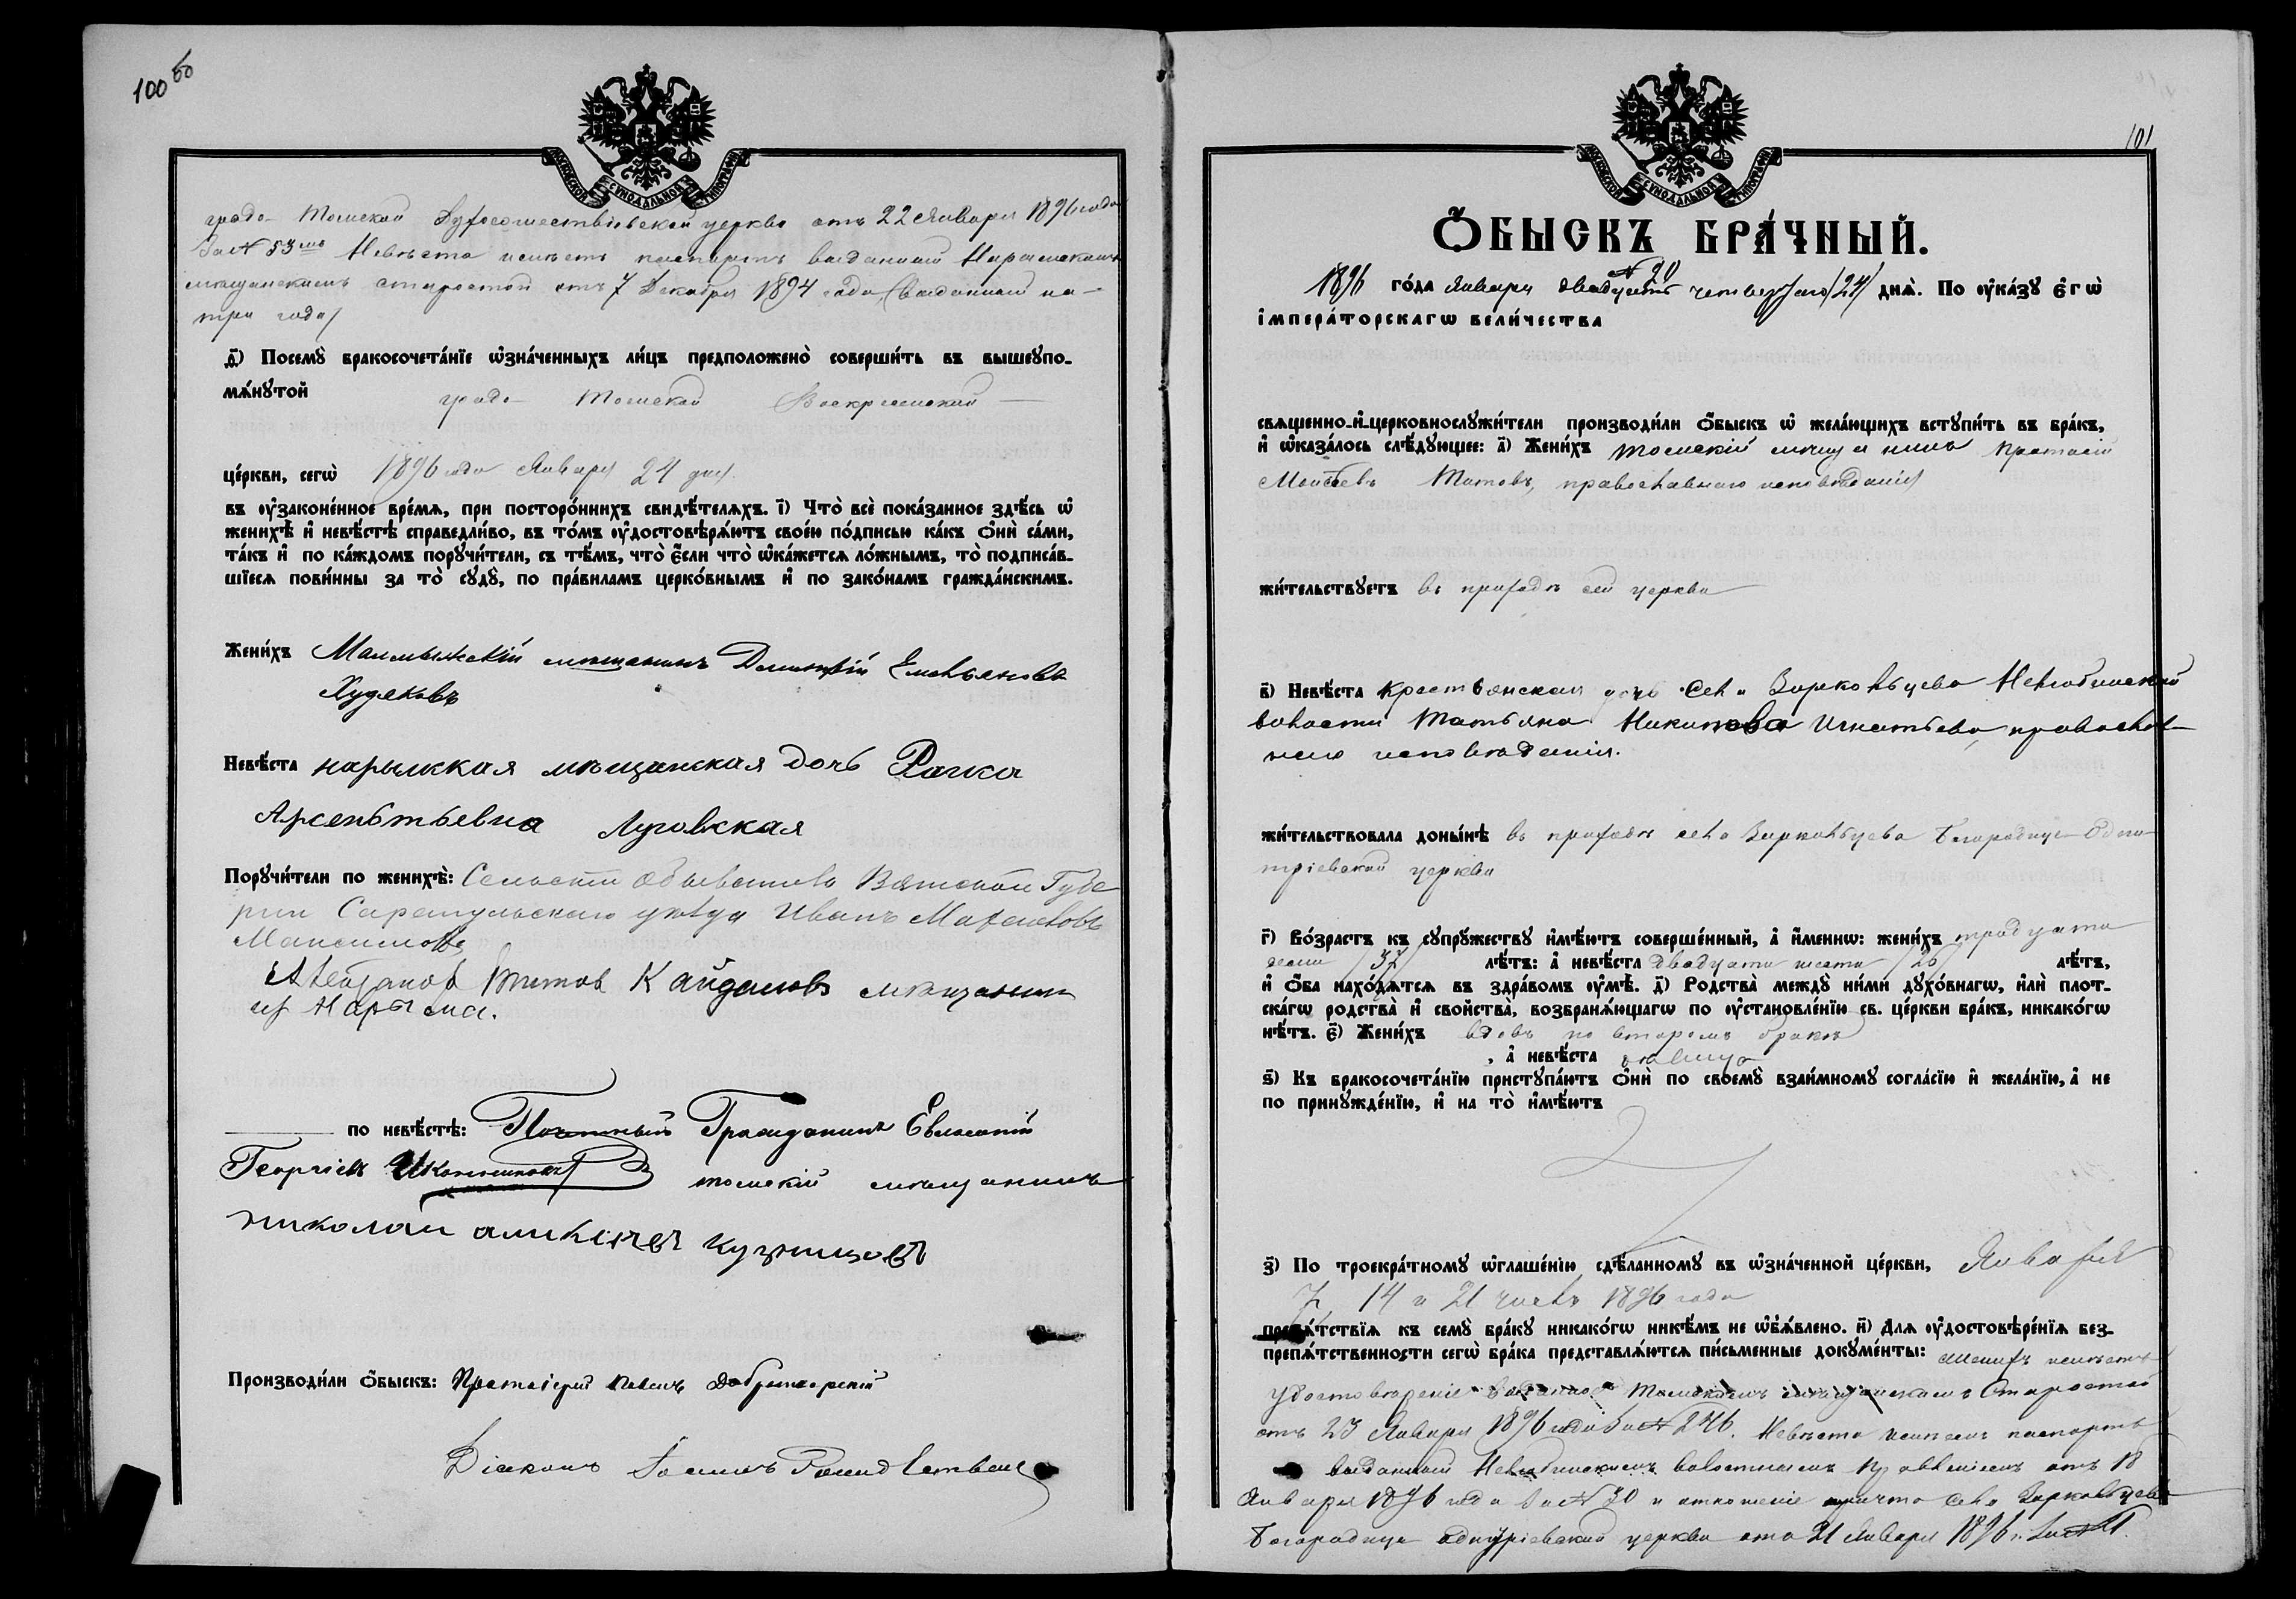 100 об
МОСКОВСКОЙ СѴНОДАЛЬНОЙ ТИПОГРАФІИ
градо- Томской Духосошествіевской церкви отъ 22 Января 1896 года
За № 53мъ Невѣста имѣетъ паспортъ выданный Нарымскимъ
мѣщанскимъ старостой отъ 7 Декабря 1894 года, (выданный на-
три года)
д҃і) Посемꙋ̀ бракосочета́нїе ѡ҆зна́ченныхъ ли́цъ предположено̀ соверши́ть въ вышеꙋпо-
мѧ́нꙋтой градо- Томской Воскресенской
це́ркви, сегѡ̀ 1896 года Января 24 дня.
въ ᲂу҆зако́ненное вре́мѧ, при посторо́ннихъ свидѣ́телѧхъ. і҃) Что̀ всѐ пока́занное здѣ́сь ѡ҆
женихѣ̀ и҆ невѣ́стѣ справедли́во, въ то́мъ ᲂу҆достовѣрѧ́ютъ свое́ю по́дписью ка́къ ѻ҆нѝ са́ми,
та́къ и҆ по ка́ждомъ порꙋчи́тели, съ тѣ́мъ, что̀ є҆́сли что̀ ѡ҆ка́жетсѧ ло́жнымъ, то̀ подписа́в-
шїесѧ пови́нны за то̀ сꙋдꙋ̀, по пра́виламъ церко́внымъ и҆ по зако́намъ гражда́нскимъ.
Жени́хъ Малмыжскій мѣщанинъ Димитрій Емельяновъ
Худяковъ
Невѣ́ста нарымкая мѣщанская дочь Раиса
Арсентьевна Луговская
Порꙋчи́тели по женихѣ̀: Сельскій обыватель Вятской Губе
рніи Сарапульскаго уѣзда Иванъ
Максимовъ
Титов Кайдалов мѣщанин
из Нарыма.
по невѣ́стѣ: Почетный Гражданинъ Евгеній
Георгіевъ Иконниковъ томскій мѣщанинъ
николай кузницовъ
Производи́ли ѻ҆́быскъ: Протоіерей Павелъ Добротворскій
Діаконъ Іоаннъ Рождественс
101
МОСКОВСКОЙ СѴНОДАЛЬНОЙ ТИПОГРАФІИ
Ѻ҆́БЫСКЪ БРА́ЧНЫЙ.
№ 20
1896 го́да Января двадцать четвертаго /24/ днѧ̀. По ᲂу҆ка́зꙋ є҆гѡ̀
і҆мпера́торскагѡ вели́чества
свѧщенно-и҆-церковнослꙋжи́тели производи́ли ѻ҆́быскъ ѡ҆ жела́ющихъ встꙋпи́ть въ бра́къ,
и҆ ѡ҆каза́лось слѣ́дꙋющее: а҃) Жени́хъ томскій мѣщанинъ Протасій
Моисеевъ Титовъ, православнаго исповѣданія
жи́тельствꙋетъ въ приходѣ сей церкви
в҃) Невѣ́ста крестьянская дочь села Зоркальцева Нелюбинской
волости Татьяна Никитова Игнатьева, православ-
наго исповѣданія.
жи́тельствовала доны́нѣ въ приходѣ села Зоркальцева Богородице-Одиги-
тріевской церкви
г҃) Во́зрастъ къ сꙋпрꙋ́жествꙋ и҆мѣ́ютъ соверше́нный, а҆ и҆́менно: жени́хъ тридцати
семи /37/ лѣ́тъ: а҆ невѣ́ста двадцати шести /26/ лѣ́тъ,
и҆ ѻ҆́ба нахо́дѧтсѧ въ здра́вомъ ᲂу҆мѣ̀. д҃) Родства̀ междꙋ̀ ни́ми дꙋхо́внагѡ, и҆лѝ плот-
ска́гѡ родства̀ и҆ сво́йства̀, возбранѧ́ющагѡ по ᲂу҆становле́нїю св. це́ркви бра́къ, никако́гѡ
нѣ́тъ. є҃) Жени́хъ вдовъ по второмъ бракѣ
, а҆ невѣ́ста дѣвица
ѕ҃) Къ бракосочета́нїю пристꙋпа́ютъ ѻ҆нѝ по своемꙋ̀ взаи́мномꙋ согла́сїю и҆ жела́нїю, а҆ не
по принꙋжде́нїю, и҆ на то̀ и҆мѣ́ютъ
з҃) По троекра́тномꙋ ѡ҆глаше́нїю сдѣ́ланномꙋ въ ѡ҆зна́ченной це́ркви, Января
7, 14 и 21 числъ 1896 года
препѧ́тствїѧ къ семꙋ̀ бра́кꙋ никако́гѡ никѣ́мъ не ѡ҆б̾ѧ́влено. и҃) Длѧ ᲂу҆достовѣре́нїѧ без-
препѧ́тственности сегѡ̀ бра́ка представлѧ́ютсѧ пи́сьменные докꙋме́нты: Женихъ имѣетъ
удостовѣреніе выданное Томскимъ мѣщанскимъ Старостой
отъ 23 Января 1896 года за № 246. Невѣста имѣетъ паспортъ
выданный Нелюбинскимъ волостнымъ правленіемъ отъ 18
Января 1896 года за № 30 и отношеніе причта села Зоркальцева
Богородице Одигитріевской церкви отъ 21 Января 1896 г. за №